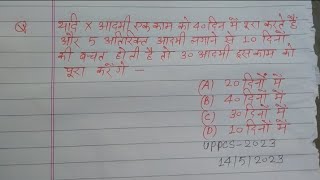 Q यदि x आदमी एक काम को 40 दिन में पूरा करते हैं
और 5 अतिरिक्त आदमी लगाने से 10 दिनों
की बचत होती है तो 30 आदमी इस काम को
पूरा करेंगे –
(A) 20 दिनों में
(B) 40 दिनों में
(C) 30 दिनों में
(D) 10 दिनों में
UPPCS-2023
14/5/2023